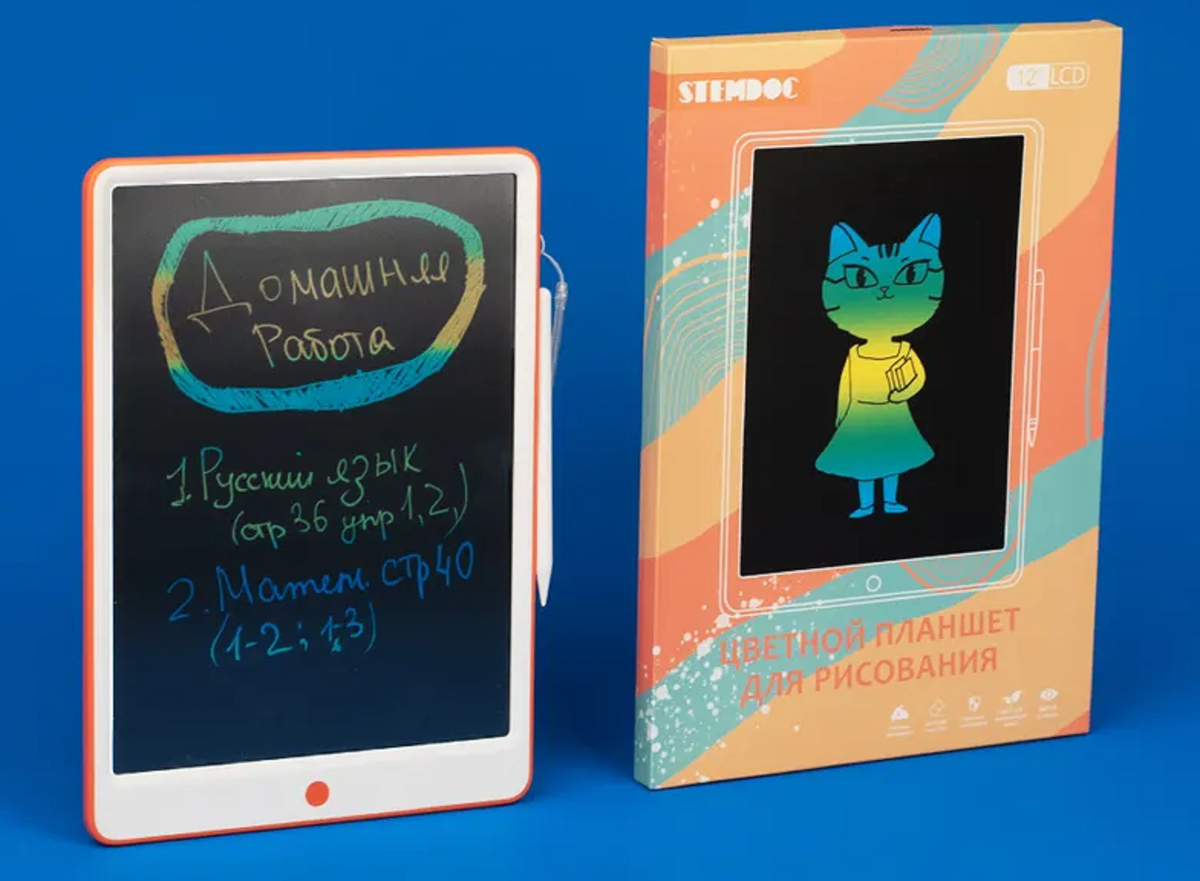 Домашняя
Работа
1. Русский язык
(стр 36 упр 1, 2,)
2. Матем. стр 40
(1-2; 1,3)
STEMDOC
12" LCD
ЦВЕТНОЙ ПЛАНШЕТ
ДЛЯ РИСОВАНИЯ